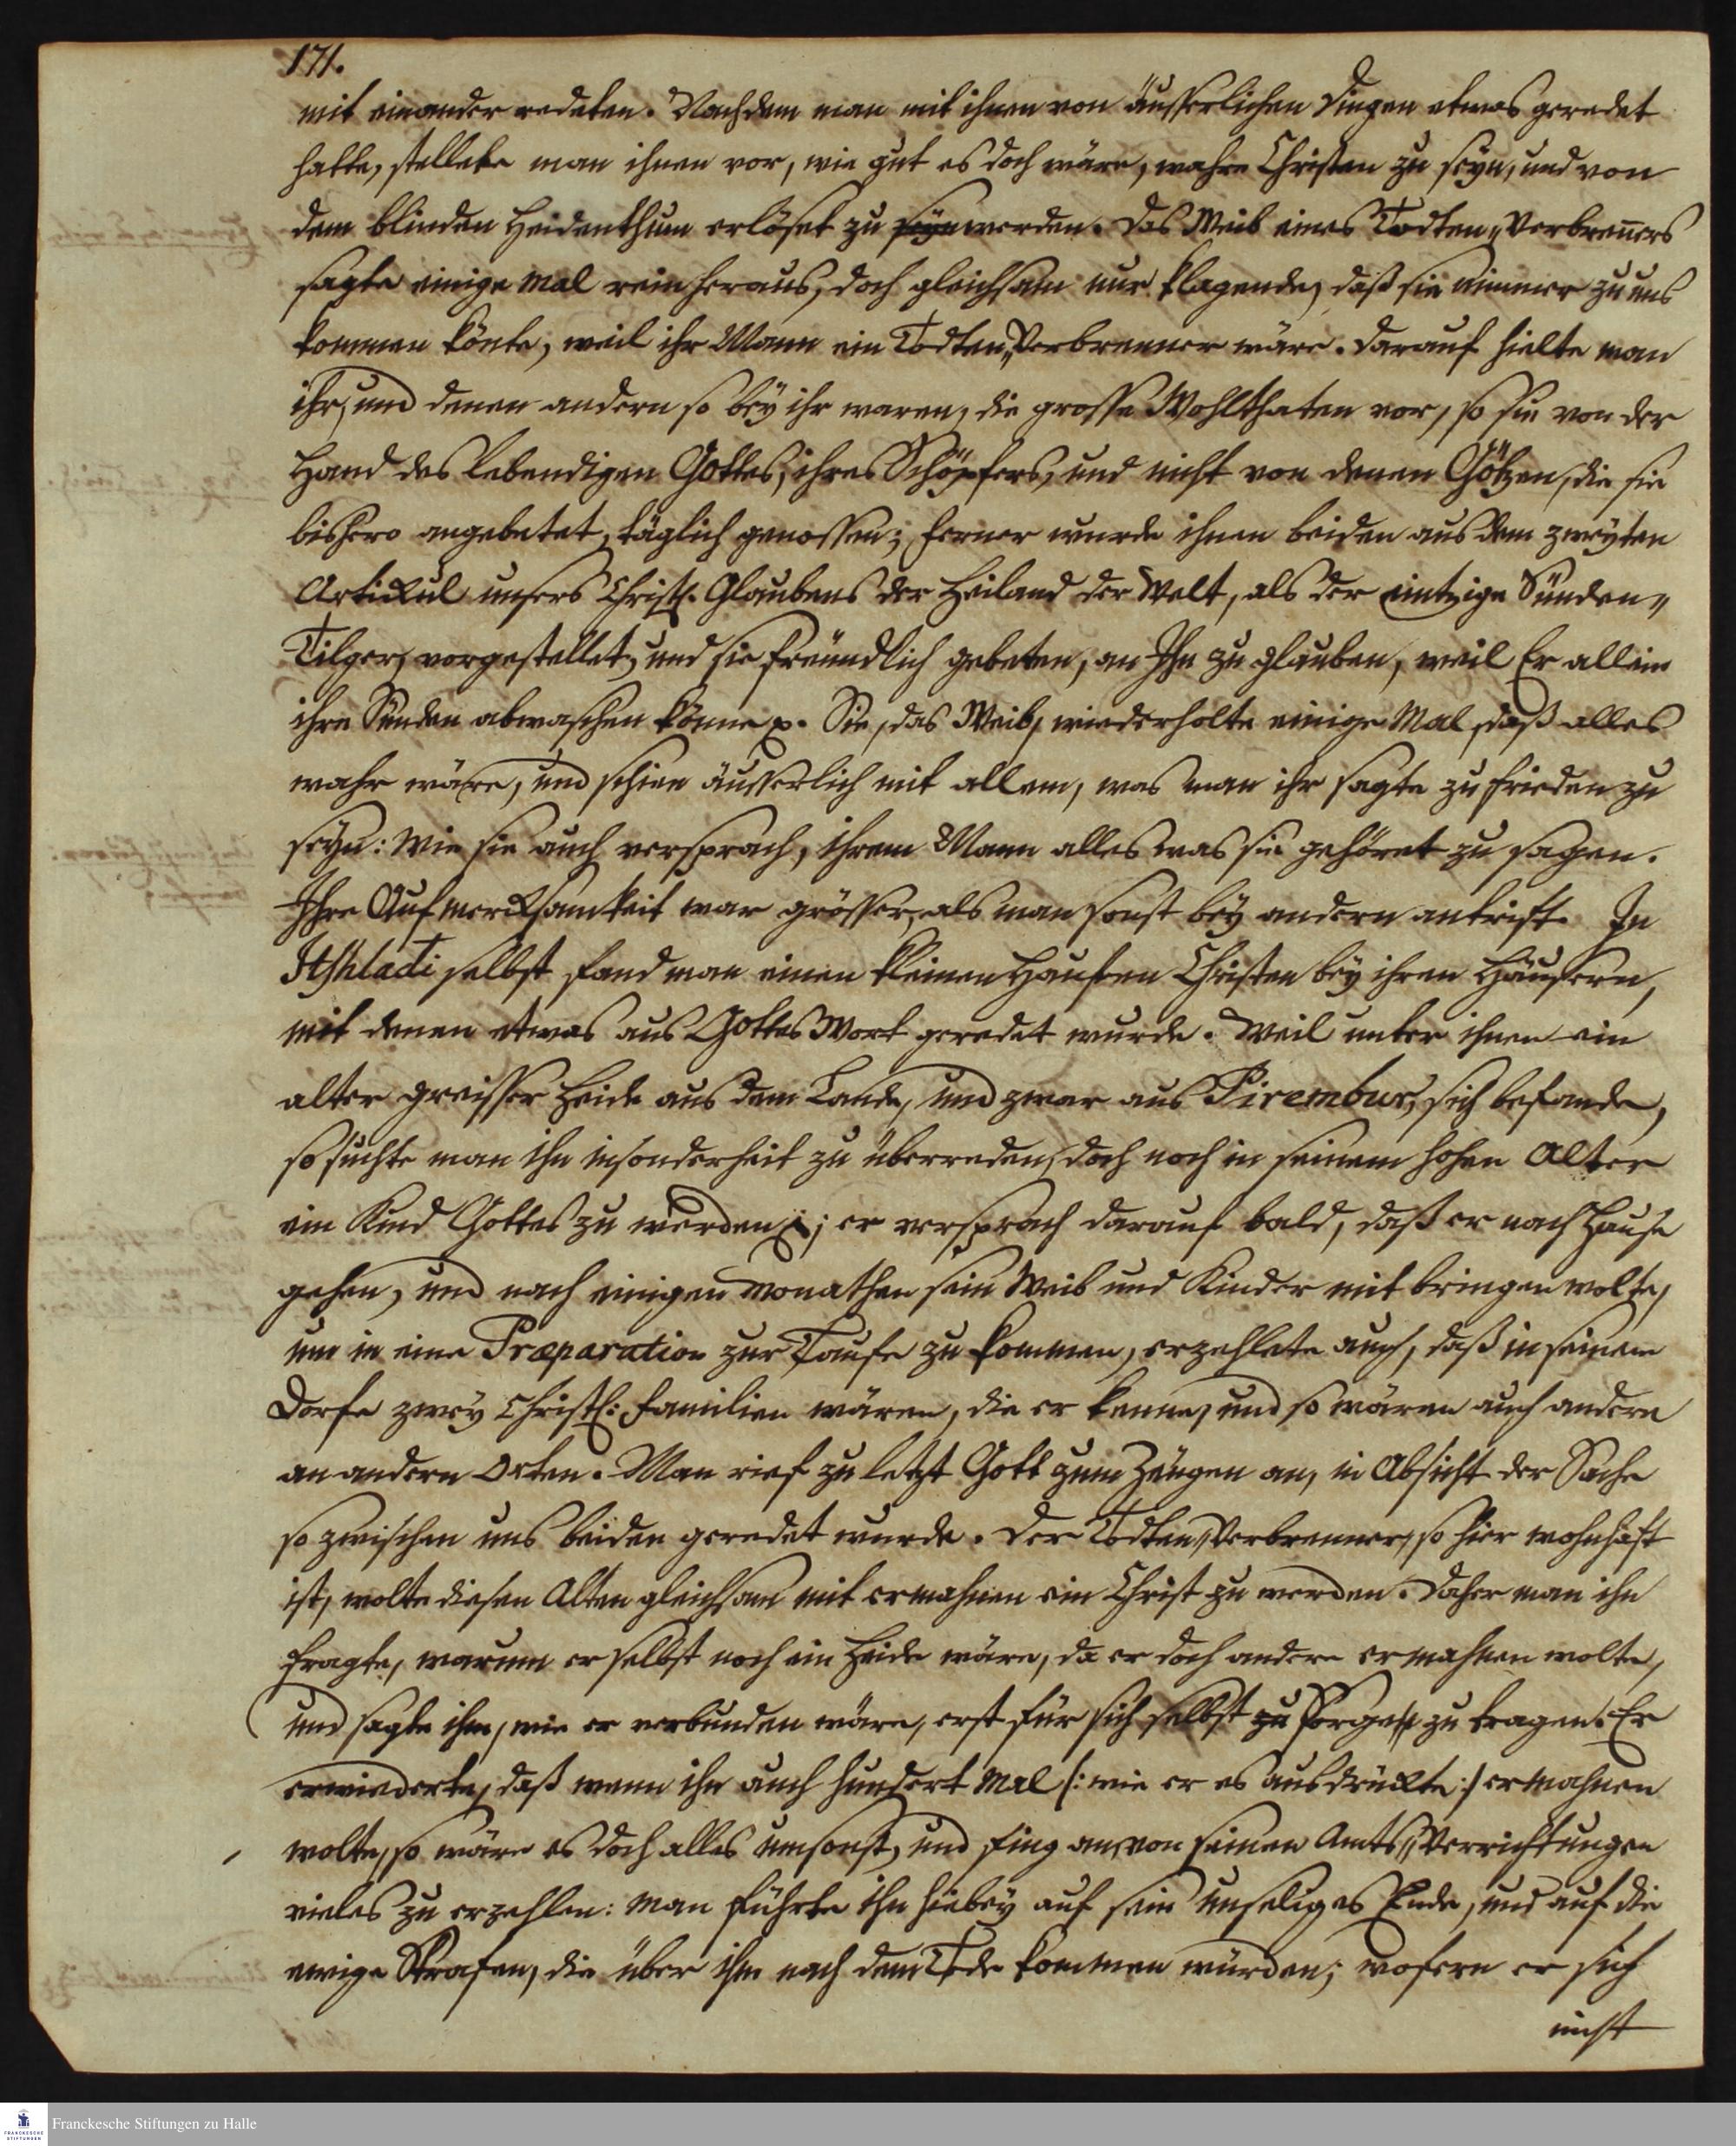 171.
mit einander redeten. Nachdem man mit ihnen von äusserlichen Dingen etwas geredet
hatte, stellete man ihnen vor, wie gut es doch wäre, wahre Christen zu seyn, und von
dem blinden Heidenthum erlöset zu seyn werden. Das Weib eines Todten„Verbrenners
sagte einige mal rein heraus, doch gleichsam nur klagende, daß sie nimmer zu uns
kommen könte, weil ihr Mann ein Todten„Verbrenner wäre. Darauf hielte man
ihr, und denen andern so bey ihr waren, die grosse Wohlthaten vor, so sie von der
Hand des Lebendigen Gottes, ihres Schöpfers, und nicht von denen Götzen, die sie
bishero angebetet, täglich genossen; ferner wurde ihnen beiden aus dem zweyten
Artikul unsers Christl. Glaubens der Heiland der Welt, als der eintzige Sünden„
Tilger, vorgestellet, und sie freundlich gebeten, an Ihn zu glauben, weil Er allein
ihre Sünden abwaschen könne p. Sie, das Weib, wiederholte einige Mal, daß alles
wahr wäre, und schien äusserlich mit allem, was man ihr sagte zu frieden zu
seyn: Wie sie auch versprach, ihrem Mann alles was sie gehöret zu sagen.
Ihre Aufmerksamkeit war grösser, als man sonst bey andern antrift. In
Itshladi selbst fand man einen kleinen Hauffen Christen bey ihren Häusern,
mit denen etwas aus Gottes Wort geredet wurde. Weil unter ihnen ein
alter greisser Heide aus dem Lande, und zwar aus Pirembur, sich befande,
so suchte man ihn insonderheit zu überreden, doch noch in seinem hohen Alter
ein Kind Gottes zu werden; er versprach darauf bald, daß er nach Hause
gehen, und nach einigen Monathen sein Weib und Kinder mit bringen wolte,
um in eine Præparation zur Taufe zu kommen, erzehlete auch, daß in seinem
Dorfe zwey Christl: Familien wären, die er kenne, und so wären auch andere
an andern Orten. Man rief zu letzt Gott zum Zeugen an, in Absicht der Sache
so zwischen uns beiden geredet wurde. Der Todten„Verbrenner, so hier wohnhaft
ist, wolte diesen Alten gleichsam mit ermahnen ein Christ zu werden. Daher man ihn
fragte, warum er selbst noch ein Heide wäre, da er doch andere ermahnen wolte,
und sagte ihm, wie er verbunden wäre, erst für sich selbst zu Sorgen zu tragen. Er
erwiederte, daß wenn ihn auch hundert Mal /: wie er es ausdrückte :/ ermahnen
wolte, so wäre es doch alles umsonst, und fing an, von seinen Amts„Verrichtungen
vieles zu erzehlen: man führte ihn hiebey auf sein unseliges Ende, und auf die
ewige Strafen, die über ihn nach dem Tode kommen würden; wofern er sich
nicht
Franckesche Stiftungen zu Halle